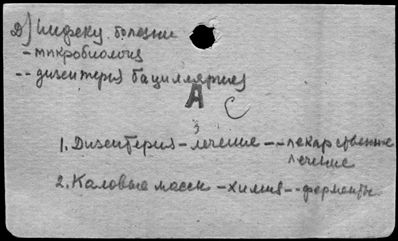 Д) Инфекц. болезни
- микробиология
-- дизентерия бациллярная
А
С
3
1. Дизентерия - лечение -- лекарственное
лечение
2. Каловые массы - химия -- ферменты